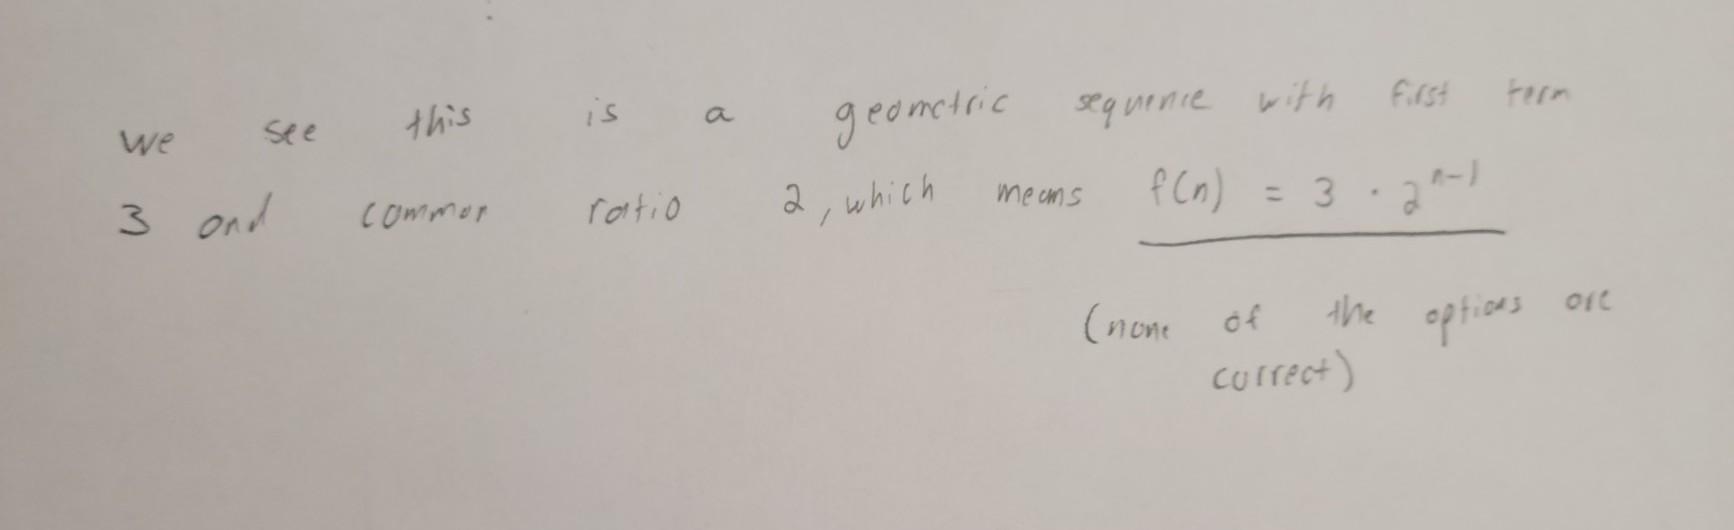 we see this is a geometric sequence with first term
3 and common ratio 2, which means f(n) = 3 · 2^{n-1}
(none of the options are
correct)